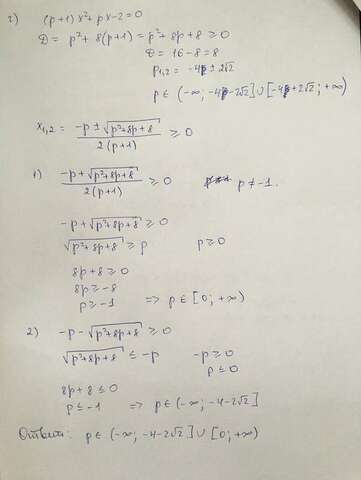 2) (p+1)x²+px-2=0
D = p²+8(p+1)=p²+8p+8 ≥ 0
D = 16-8=8
p₁,₂ = -4 ± 2√2
p ∈ (-∞; -4-2√2] ∪ [-4+2√2; +∞)
x₁,₂ = (-p ± √(p²+8p+8)) / (2(p+1)) ≥ 0
1) (-p+√(p²+8p+8)) / (2(p+1)) ≥ 0 p ≠ -1.
-p+√(p²+8p+8) ≥ 0
√(p²+8p+8) ≥ p p ≥ 0
8p+8 ≥ 0
8p ≥ -8
p ≥ -1 => p ∈ [0; +∞)
2) -p-√(p²+8p+8) ≥ 0
√(p²+8p+8) ≤ -p -p ≥ 0
p ≤ 0
8p+8 ≤ 0
p ≤ -1 => p ∈ (-∞; -4-2√2]
Ответ: p ∈ (-∞; -4-2√2] ∪ [0; +∞)